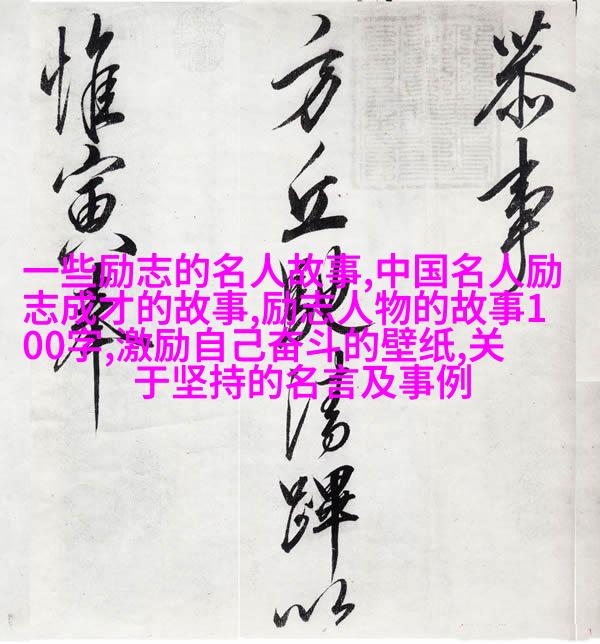 恭事
方丘清蹕以
惟寅奉
一些励志的名人故事,中国名人励
志成才的故事,励志人物的故事1
00字,激励自己奋斗的壁纸,关
于坚持的名言及事例